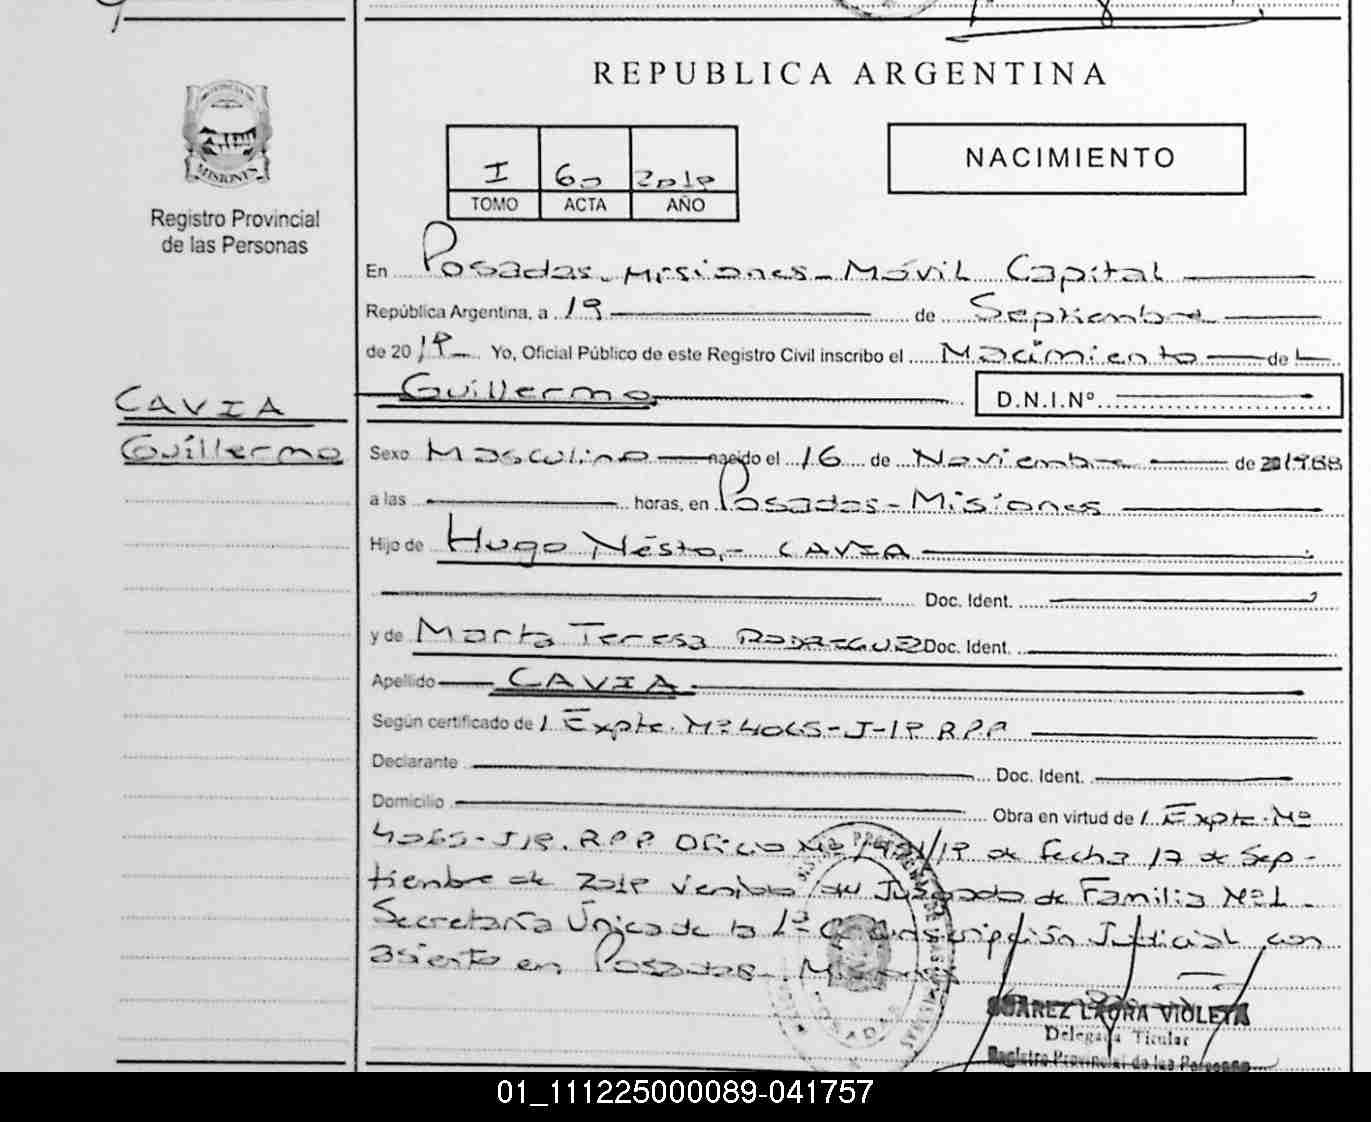 REPUBLICA ARGENTINA
MISIONES
Registro Provincial
de las Personas
I 60
TOMO ACTA AÑO
NACIMIENTO
En Posadas - Misiones - Móvil Capital
República Argentina, a 19 de Septiembre
de 20 Yo, Oficial Público de este Registro Civil inscribo el Nacimiento de L
CAVIA
Guillermo
Guillermo D.N.I.Nº
Sexo Masculino nacido el 16 de Noviembre de 1988
a las horas, en Posadas - Misiones
Hijo de Hugo Néstor CAVIA
Doc. Ident.
y de Marta Teresa RODRIGUEZ Doc. Ident.
Apellido CAVIA
Según certificado de / Expte. Nº 4065-J-1 RPP
Declarante Doc. Ident.
Domicilio Obra en virtud de / Expte. Nº
4065-J RPP Oficio Nº de fecha 17 de Sep-
tiembre de venido del Juzgado de Familia Nº 1 -
Secretaría Única de la 1º Circunscripción Judicial con
asiento en Posadas - Misiones
SUAREZ LAURA VIOLETA
Delegada Titular
Registro Provincial de las Personas
01_111225000089-041757